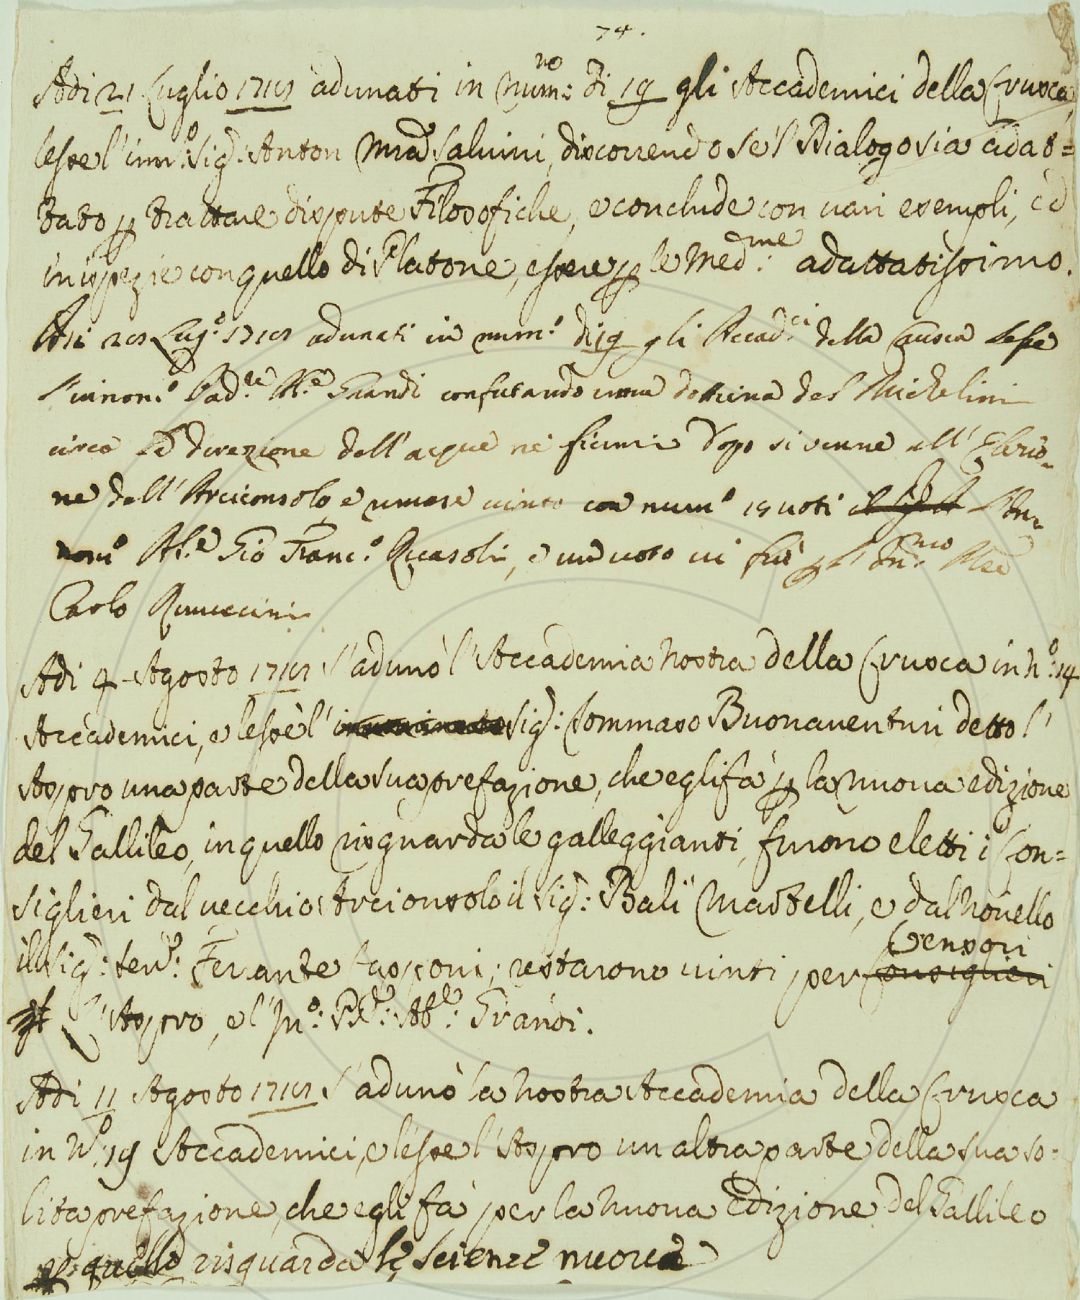 74.
Adi 21 Luglio 1717 adunati in num:ro di 19 gli Accademici della Crusca
lesse l'Inn:o Sig:r Anton Ma Salvini, discorrendo se'l Dialogo sia adat=
tato p trattare dispute Filosofiche, e conclude con vari esempli, ed
in ispezie con quello di Platone, essere p le Med:me adattatissimo.
Adi 28 Lug.o 1717 adunati in num.o di 19 gli Accad.ci della Crusca lesse
l'innom.o Pad.re Ab.e Grandi confutando una dottina del Michelini
circa la direzione dell'acque ne fiumi Dopo si venne all'Elezio-
ne dell'Arciconsolo e rimase vinto con num.o 15 voti il Sig.r l'In-
nom.o Ab.e Gio Franc.o Ricasoli, e un voto vi fu p l'Inn:mco Ab.e
Carlo Rinuccini
Adi 4 Agosto 1717 s'adunò l'Accademia nostra della Crusca in n.o:14
Accademici, e lesse l'innominato Sig:r Tommaso Buonaventuri detto l'
Aspro una parte della sua prefazione, che egli fà p la nuova edizione
del Gallileo, in quello risguarda le galleggianti, furono eletti i Con=
siglieri dal vecchio Arciconsolo il Sig:r Balì Martelli, e dal novello
il Sig:r Sen:re Ferrante Capponi; restarono vinti per Consiglieri
Censori
L'Aspro, e l'In:o: P.re: Ab.e: Grandi.
Adi 11 Agosto 1717 s'adunò la nostra Accademia della Crusca
in N.o 19 Accademici, e lesse l'Aspro un altra parte della sua so=
lita prefazione, che egli fà per la nuova Edizione del Gallileo
quello risguarda le scienze nuove